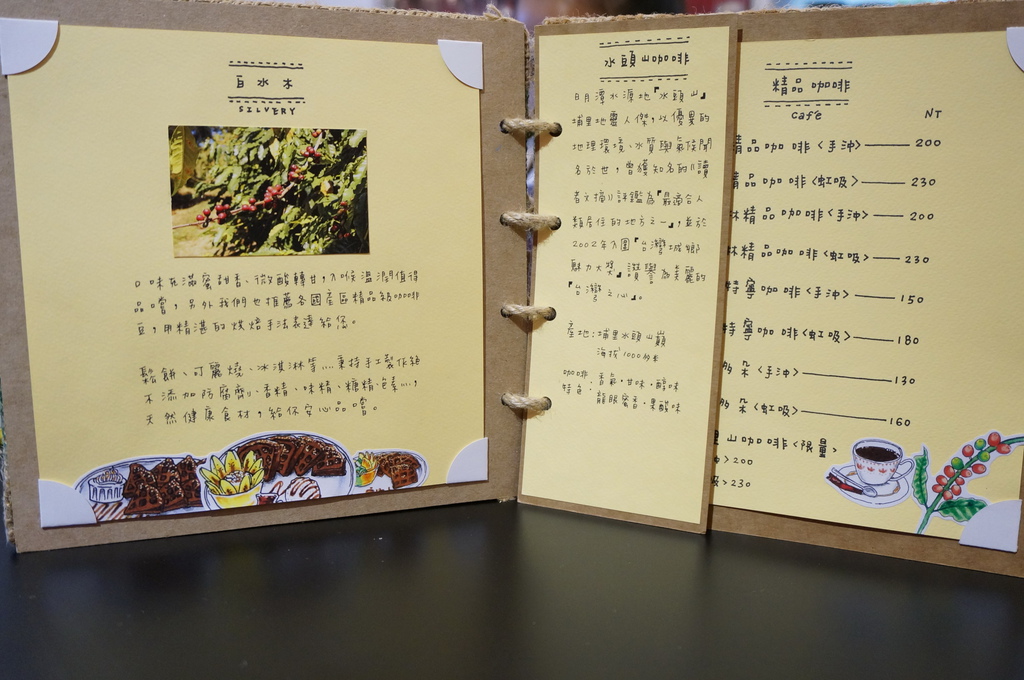 白水木
SILVERY
口味充滿蜜甜香、微酸轉甘,入喉溫潤值得
品嘗,另外我們也推薦各國產區精品級咖啡
豆,用精湛的烘焙手法表達給您。
鬆餅、可麗燒、冰淇淋等...秉持手工製作絕
不添加防腐劑、香精、味精、糖精、色素...,
天然健康食材,給你安心品嚐。
水頭山咖啡
日月潭水源地『水頭山』
埔里地靈人傑,以優異的
地理環境、水質與氣候聞
名於世,曾獲知名的《讀
者文摘》評鑑為『最適合人
類居住的地方之一』,並於
2002年入圍『台灣城鄉
魅力大獎』讚譽為美麗的
『台灣之心』。
產地:埔里水頭山巔
海拔1000公尺
咖啡特色:香氣、甘味、醇味
龍眼蜜香、果酸味
精品咖啡
café
NT
精品咖啡<手沖>——200
精品咖啡<虹吸>——230
林精品咖啡<手沖>——200
林精品咖啡<虹吸>——230
特寧咖啡<手沖>——150
特寧咖啡<虹吸>——180
朵<手沖>——130
朵<虹吸>——160
山咖啡<限量>
>200
>230